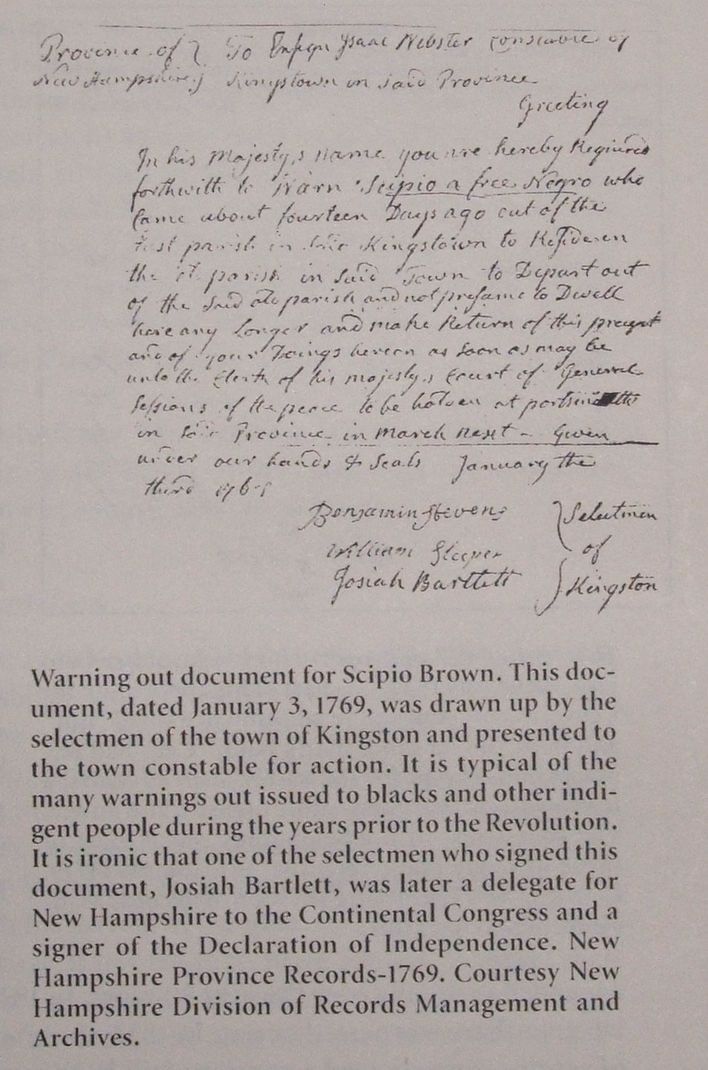 Province of } To Ensign Isaac Webster Constable of
New Hampshire } Kingstown in said Province
Greeting
In his Majesty,s name you are hereby Required
forthwith to Warn Scipio a free Negro who
Came about fourteen Days ago out of the
East parish in said Kingstown to Reside in
the parish in said Town to Depart out
of the said parish and not presume to Dwell
here any Longer and make Return of this precept
and of your Doings herein as soon as may be
unto the Clerk of his majesty,s Court of General
Sessions of the peace to be holden at portsmouth
in said Province in March next - Given
under our hands & Seals January the
third
Benjamin Stevens } Selectmen
William Sleeper } of
Josiah Bartlett } Kingston
Warning out document for Scipio Brown. This doc-
ument, dated January 3, 1769, was drawn up by the
selectmen of the town of Kingston and presented to
the town constable for action. It is typical of the
many warnings out issued to blacks and other indi-
gent people during the years prior to the Revolution.
It is ironic that one of the selectmen who signed this
document, Josiah Bartlett, was later a delegate for
New Hampshire to the Continental Congress and a
signer of the Declaration of Independence. New
Hampshire Province Records-1769. Courtesy New
Hampshire Division of Records Management and
Archives.